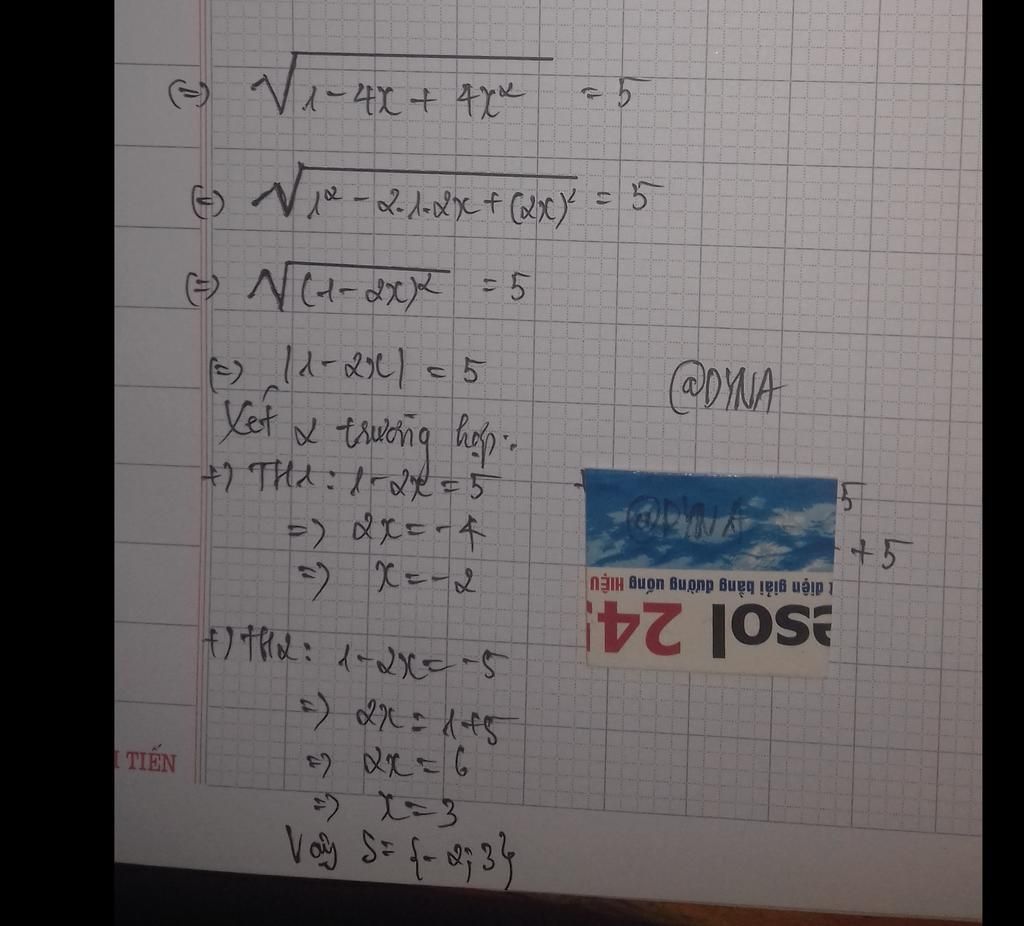 (=) √1 - 4x + 4x² = 5
(=) √1² - 2.1.2x + (2x)² = 5
(=) √(1 - 2x)² = 5
(=) |1 - 2x| = 5
@DYNA
Xét 2 trường hợp:
+) TH1: 1 - 2x = 5
=) 2x = -4
=) x = -2
5
+ 5
@DYNA
t điện giải bằng đường uống HIỆU
esol 245
+) TH2: 1 - 2x = -5
=) 2x = 1 + 5
=) 2x = 6
=) x = 3
TIẾN
Vậy S = {-2; 3}